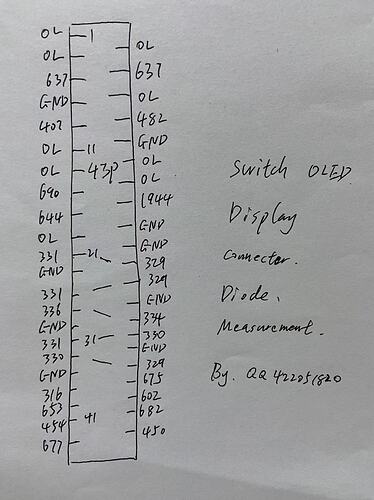 OL 1
OL
OL
637
637
OL
GND
482
407
GND
OL 11
OL
OL 43P
OL
690
1944
644
GND
OL
GND
331 21
329
GND
329
331
GND
336
334
GND
330
331 31
GND
330
329
GND
675
316
602
653
682
454 41
450
677
Switch OLED
Display
Connector.
Diode.
Measurement.
By. QQ 422051820